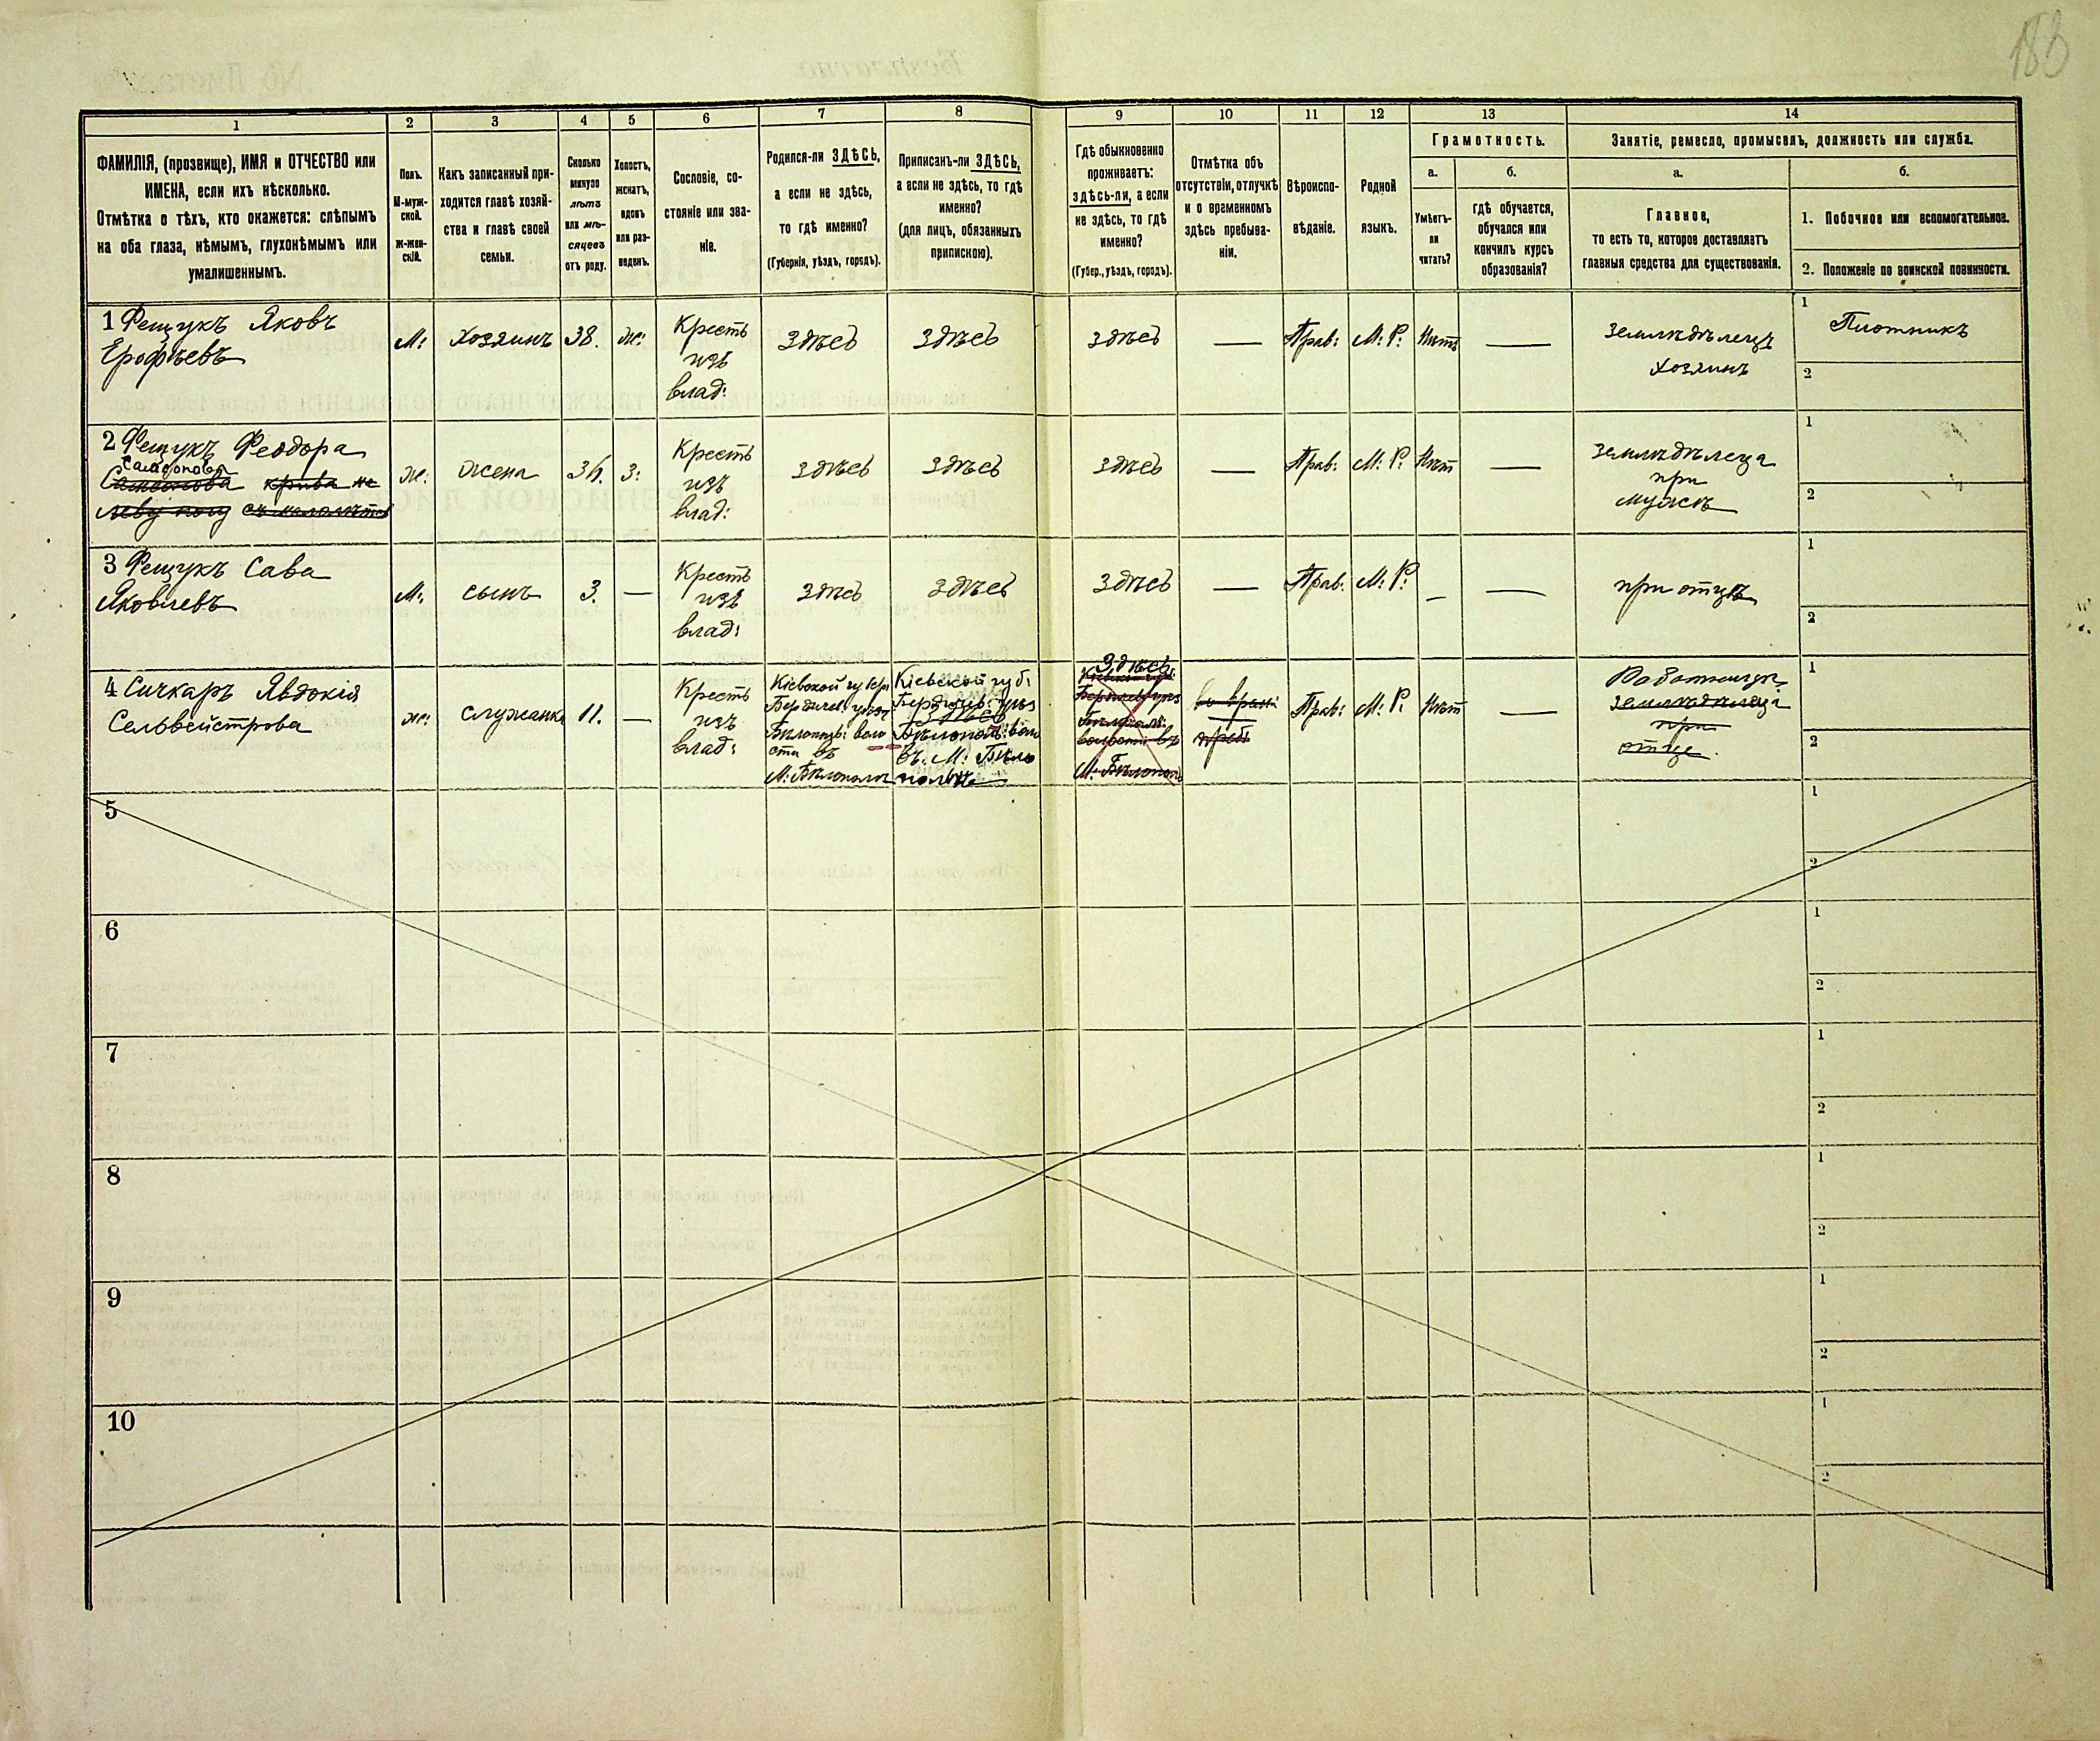 183
1
2
3
4
5
6
7
8
9
10
11
12
13
14
ФАМИЛІЯ, (прозвище), ИМЯ и ОТЧЕСТВО или
ИМЕНА, если ихъ нѣсколько.
Отмѣтка о тѣхъ, кто окажется: слѣпымъ
на оба глаза, нѣмымъ, глухонѣмымъ или
умалишеннымъ.
Полъ.
М-муж-
ской.
ж-жен-
скій.
Какъ записанный при-
ходится главѣ хозяй-
ства и главѣ своей
семьи.
Сколько
минуло
лѣтъ
или мѣ-
сяцевъ
отъ роду.
Холостъ,
женатъ,
вдовъ
или раз-
веденъ.
Сословіе, со-
стояніе или зва-
ніе.
Родился-ли ЗДѢСЬ,
а если не здѣсь,
то гдѣ именно?
(Губернія, уѣздъ, городъ).
Приписанъ-ли ЗДѢСЬ,
а если не здѣсь, то гдѣ
именно?
(для лицъ, обязанныхъ
припискою).
Гдѣ обыкновенно
проживаетъ:
здѣсь-ли, а если
не здѣсь, то гдѣ
именно?
(Губер., уѣздъ, городъ).
Отмѣтка объ
отсутствіи, отлучкѣ
и о временномъ
здѣсь пребыва-
ніи.
Вѣроиспо-
вѣданіе.
Родной
языкъ.
Грамотность.
а.
Умѣетъ-
ли
читать?
б.
гдѣ обучается,
обучался или
кончилъ курсъ
образованія?
Занятіе, ремесло, промыселъ, должность или служба.
а.
Главное,
то есть то, которое доставляетъ
главныя средства для существованія.
б.
1. Побочное или вспомогательное.
2. Положеніе по воинской повинности.
1 Фещукъ Яковъ
Ерофѣевъ
М:
Хозяинъ
38.
же:
Кресть
изъ
влад:
Здѣсь
Здѣсь
Здѣсь
—
Прав:
М: Р:
Нѣтъ
—
Земледѣлецъ
Хозяинъ
1
Плотникъ
2
2 Фещукъ Феодора
Самсонова крива на
леву ногу
же:
жена
3:
Кресть
изъ
влад:
Здѣсь
Здѣсь
Здѣсь
—
Прав:
М: Р:
Нѣт
—
Земледѣлеца
при
мужѣ
1
2
3 Фещукъ Сава
Яковлевъ
М:
сынъ
3.
—
Кресть
изъ
влад:
Здѣсь
Здѣсь
Здѣсь
—
Прав:
М: Р:
—
—
при отцѣ
1
2
4 Сичкаръ Явдокія
Сельвейстрова
же:
служанка
11.
—
Кресть
изъ
влад:
Кіевской губер:
Бердичев: уѣзд
Бѣлополь: воло
сти въ
М: Бѣлополь
Кіевской губ:
Бердичев: уѣз
Здѣсь
Бѣлополь: вол
въ: М: Бѣло
польѣ
Здѣсь
волости въ
М: Бѣлополь
Прав:
М: Р:
Нѣт
—
Работница
земледѣлеца
при
отце.
1
2
5
1
2
6
1
2
7
1
2
8
1
2
9
1
2
10
1
2